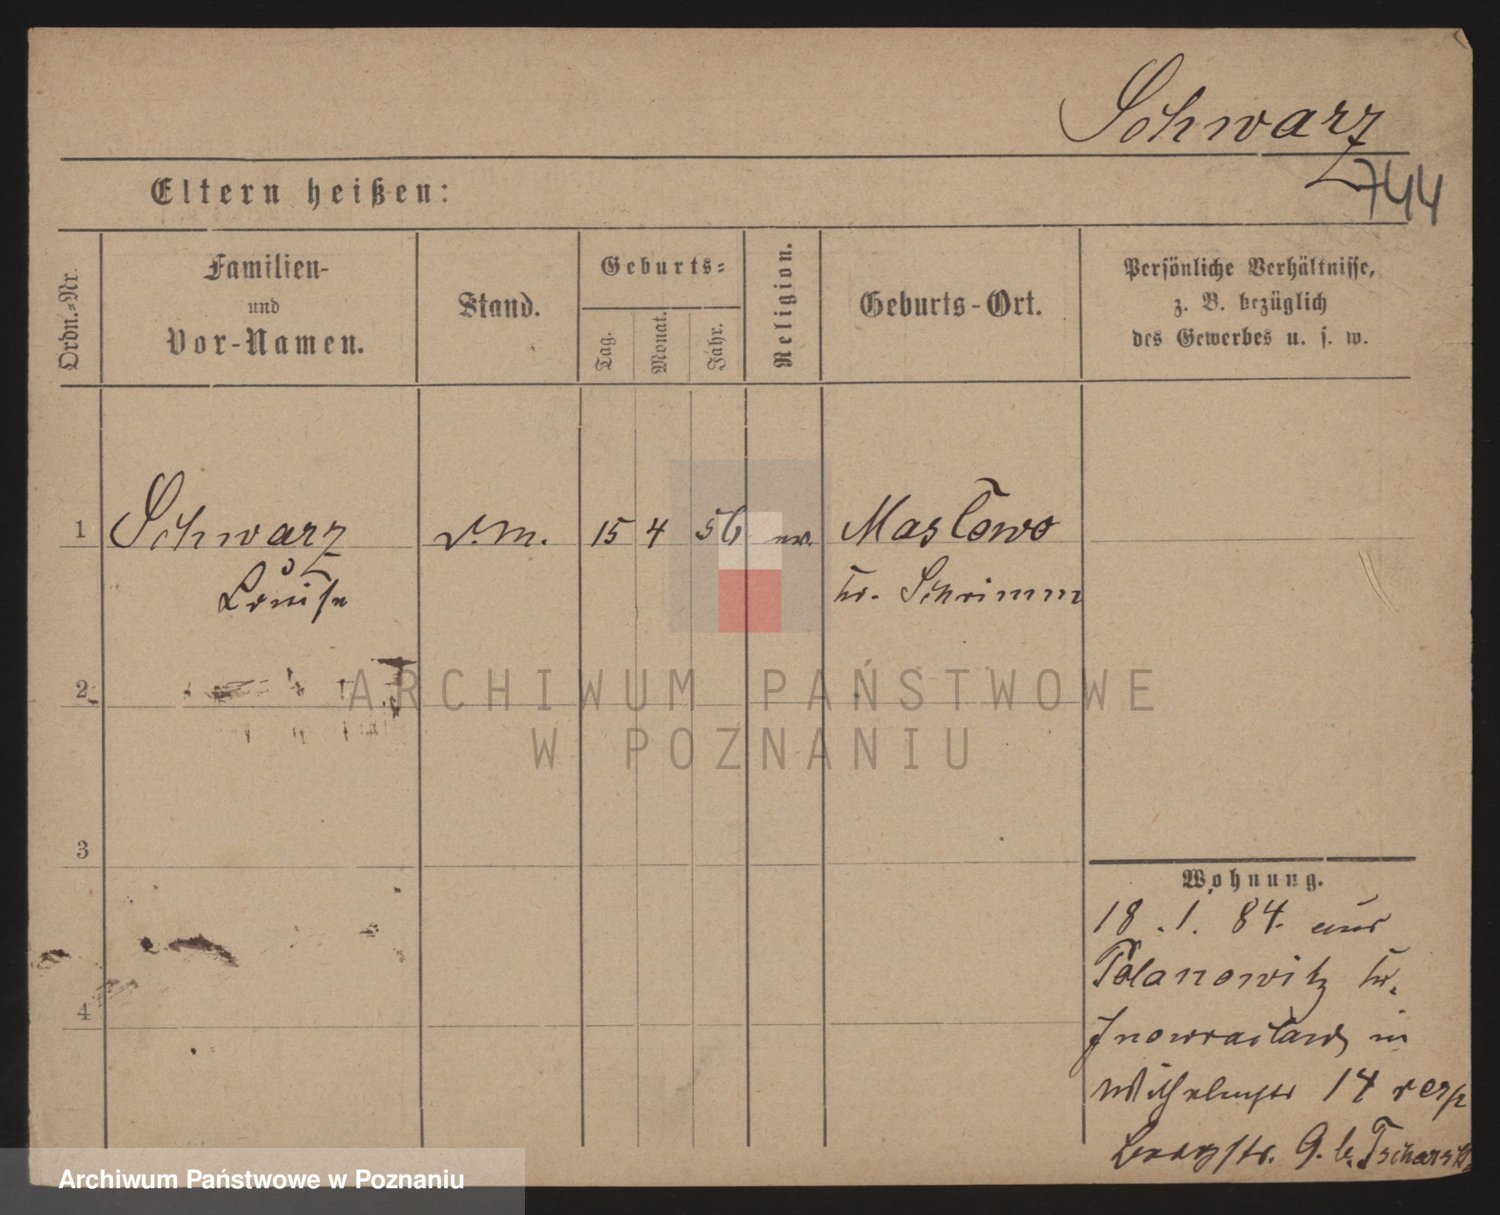 Schwarz
744
Eltern heißen:
Ordn.-Nr.
Familien-
und
Vor-Namen.
Stand.
Geburts-
Tag.
Monat.
Jahr.
Religion.
Geburts-Ort.
Persönliche Verhältnisse,
z. B. bezüglich
des Gewerbes u. s. w.
1 Schwarz d.m. 15 4 56 ev. Maslowo
Louise Kr. Schrimm
2
ARCHIWUM PAŃSTWOWE
W POZNANIU
3
4
Wohnung.
18.1.84. aus
Polanowitz Kr.
Inowraclaw in
Wilhelmstr 14 resp
9. b. Tscharski
Archiwum Państwowe w Poznaniu